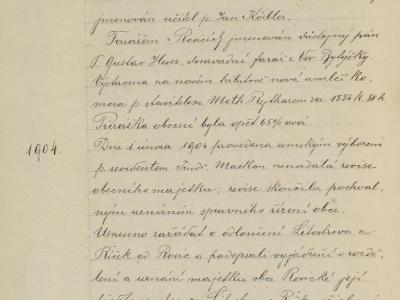 jmenován učitel p. Jan Köibler.
Farářem v Roncích jmenován důstojný pán
P. Gustav dosavadní farář z Vev. Bytyšky.
Vystavena na novém hřbitově nová umrlčí ko-
mora p. stavitelem Meth. Rejthárem za 1554 k. 80 h.
Přirážka obecní byla opět 65% ová.
1904.
Dne 1 února 1904 provedena zemským výborem
p. revidentem Jindr. nenadálá revise
obecního majetku; revise skončila pochval-
ným uznáním správného řízení obce.
Usneseno zažádat o odloučení Litostrova a
Říček od Ronc a podepsáti vyjádření o rozdě-
lení a uznání majetku obce Roncké její